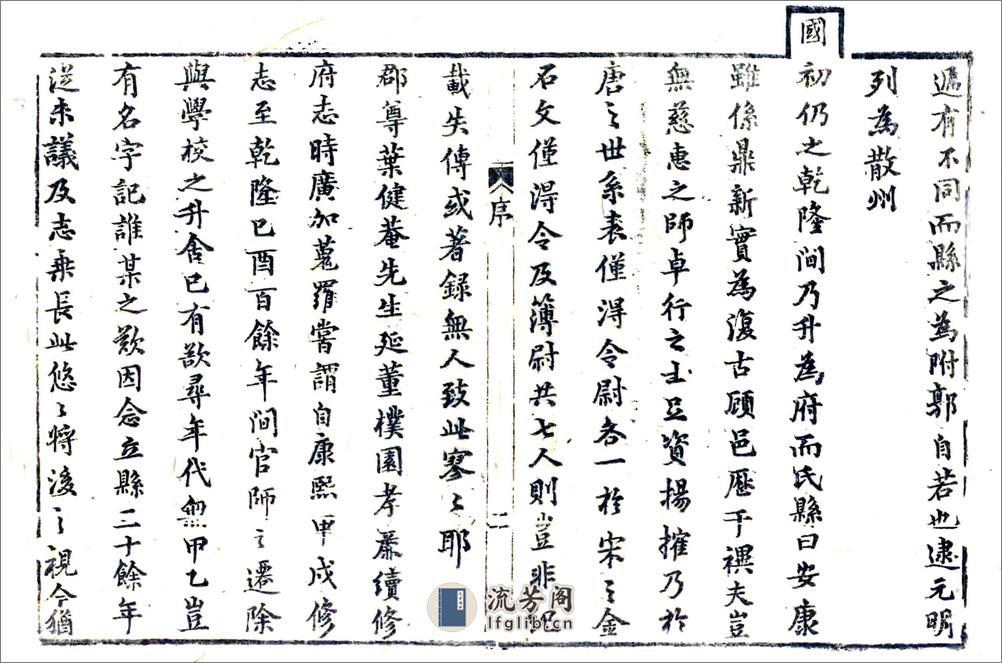 遞有不同而縣之為附郭自若也逮元明
列為散州
國
初仍之乾隆間乃升為府而氏縣曰安康
雖係鼎新實為復古顧邑歷千禩夫豈
無慈惠之師卓行之士足資揚搉乃於
唐之世系表僅得令尉各一於宋之金
石文僅得令及簿尉共七人則豈非
序
二
載失傳或著録無人致此寥〻耶
郡尊葉健菴先生延董樸園孝廉續修
府志時廣加蒐羅嘗謂自康熙甲戌修
志至乾隆己酉百餘年間官師之遷除
與學校之升舍已有欲尋年代無甲乙豈
有名字記誰某之歎因念立縣二十餘年
從未議及志乘長此悠〻將後之視今猶
流芳阁
lfglib.cn